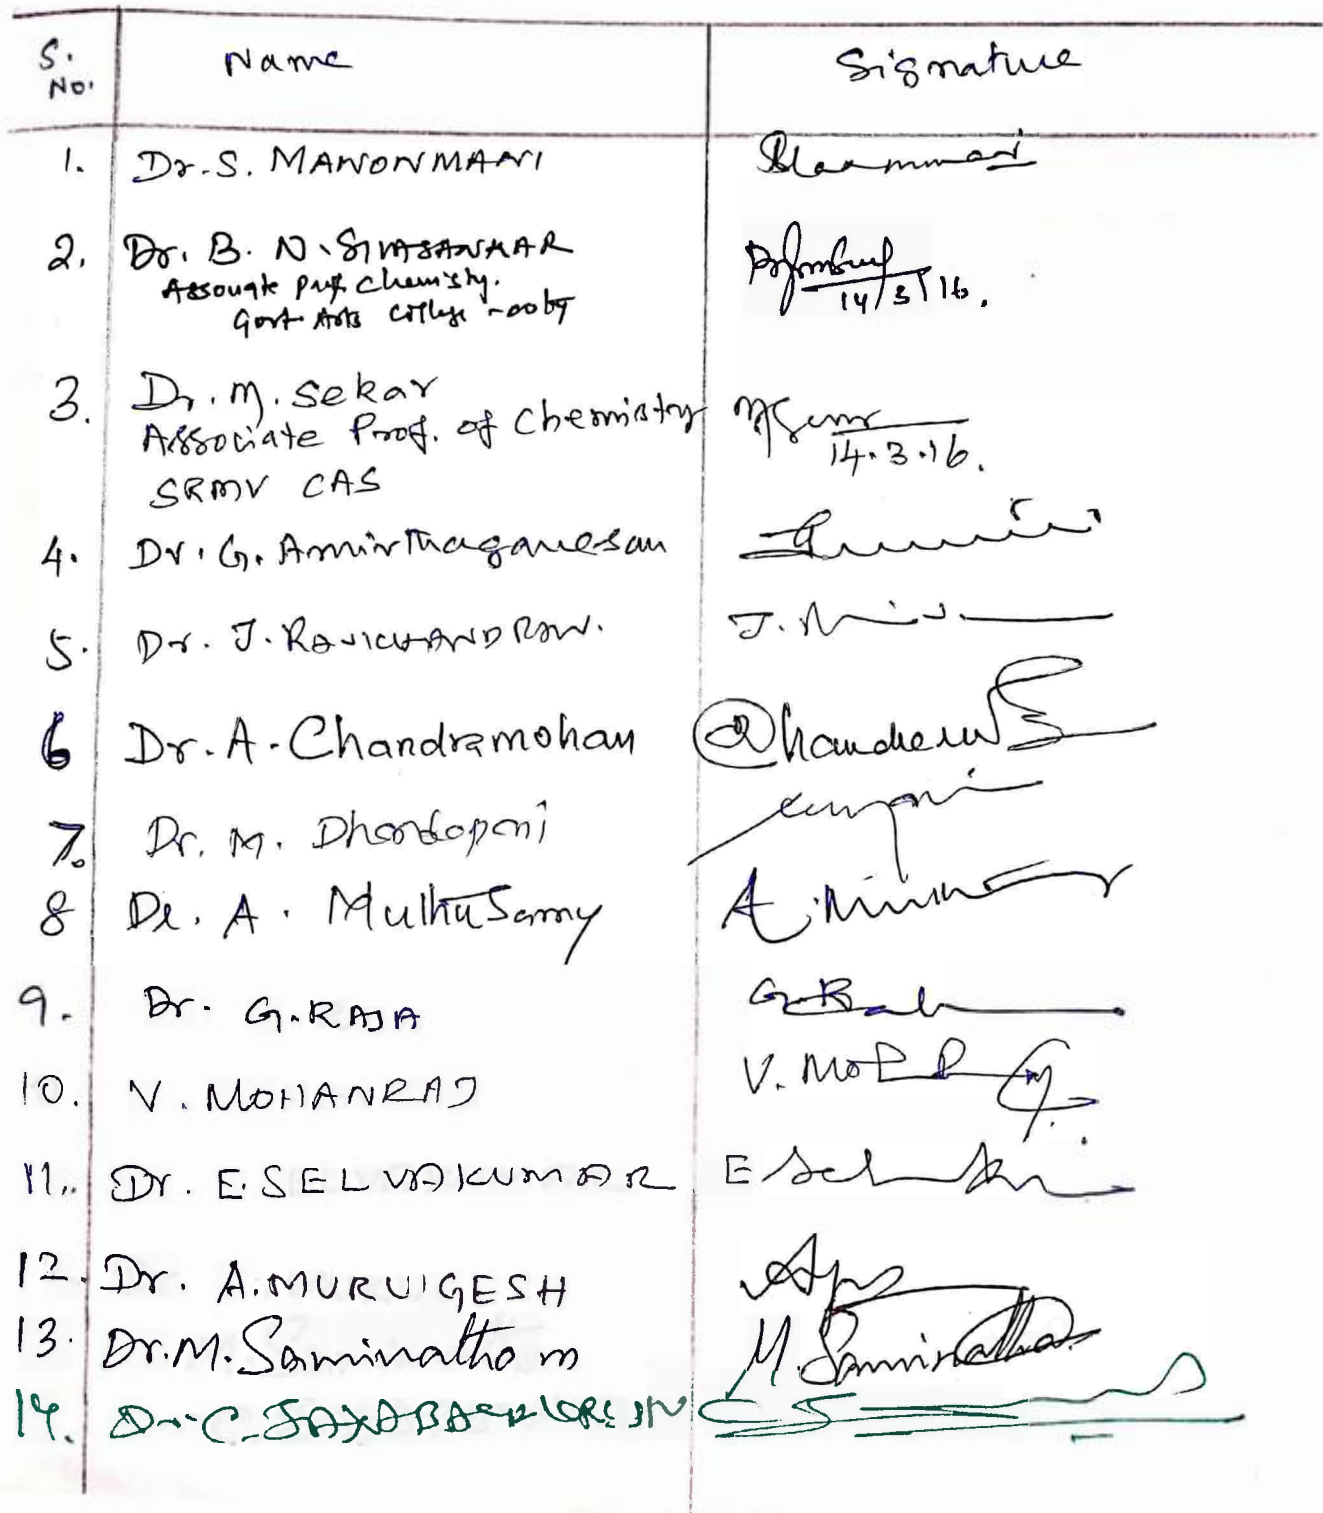 S. No. Name Signature
1. Dr. S. MANONMANI
2. Dr. B. N. SIVASANKAR
Associate Prof. Chemistry.
Govt Arts College - ooty
14/3/16.
3. Dr. M. Sekar
Associate Prof. of Chemistry
SRMV CAS
14.3.16.
4. Dr. G. Amirthaganesan
5. Dr. J. RAVICHANDRAN. J.
6 Dr. A. Chandramohan
7. Dr. M. Dhandapani
8 Dr. A. Muthusamy A.
9. Dr. G. RAJA G.
10. V. MOHANRAJ V.
11. Dr. E. SELVAKUMAR E
12. Dr. A. MURUGESH
13. Dr. M. Saminathan M. Saminathan
14. Dr. C.